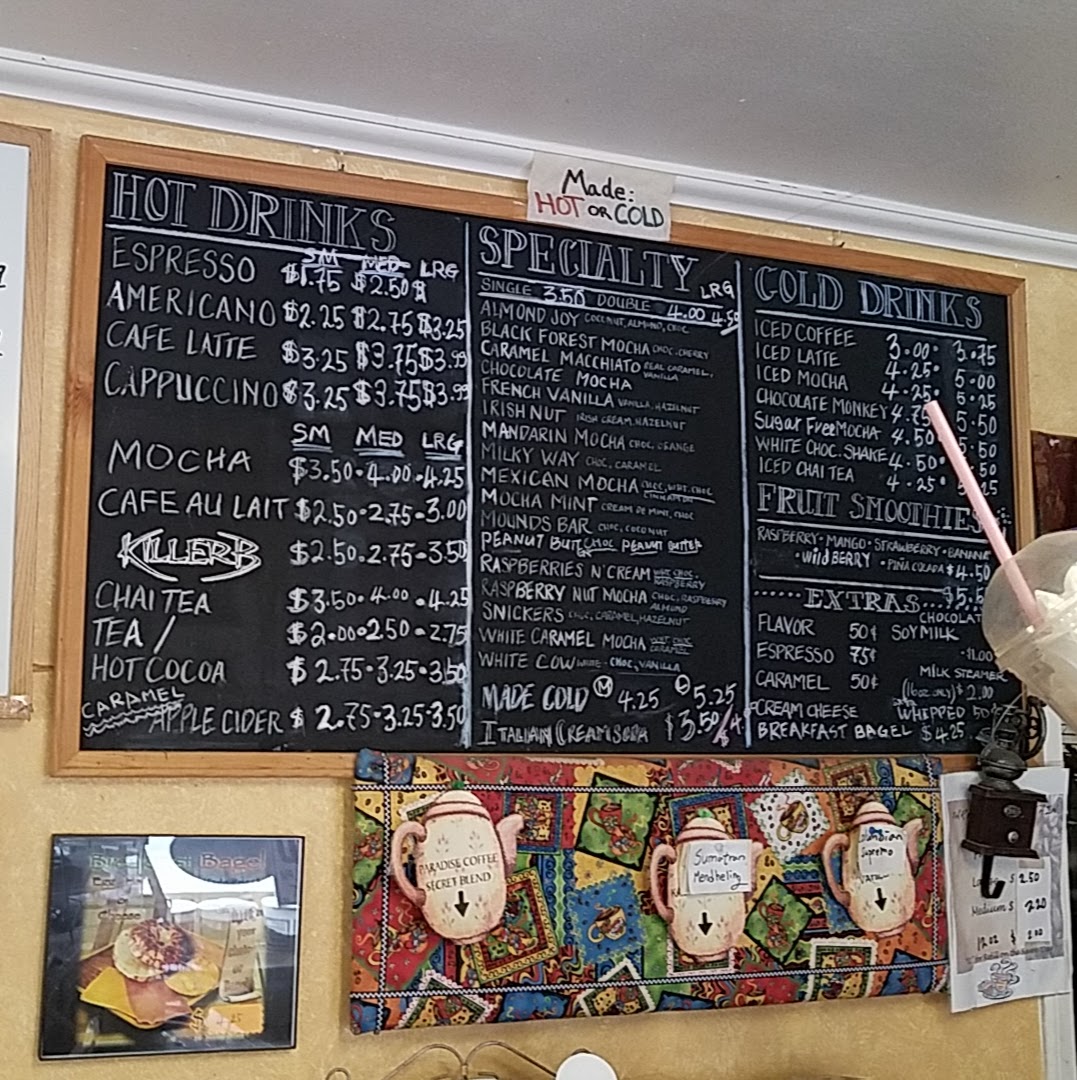 Made:
HOT OR COLD
HOT DRINKS
SM MED LRG
ESPRESSO $1.75 $2.50 $
AMERICANO $2.25 $2.75 $3.25
CAFE LATTE $3.25 $3.75 $3.99
CAPPUCCINO $3.25 $3.75 $3.99
SM MED LRG
MOCHA $3.50 • 4.00 • 4.25
CAFE AU LAIT $2.50 • 2.75 • 3.00
KILLER B $2.50 • 2.75 • 3.50
CHAI TEA $3.50 • 4.00 • 4.25
TEA / $2.00 • 2.50 • 2.75
HOT COCOA $2.75 • 3.25 • 3.50
CARAMEL
APPLE CIDER $2.75 • 3.25 • 3.50
SPECIALTY LRG
SINGLE 3.50 DOUBLE 4.00 4.50
ALMOND JOY COCONUT, ALMOND, CHOC
BLACK FOREST MOCHA CHOC, CHERRY
CARAMEL MACCHIATO REAL CARAMEL, VANILLA
CHOCOLATE MOCHA
FRENCH VANILLA VANILLA, HAZELNUT
IRISH NUT IRISH CREAM, HAZELNUT
MANDARIN MOCHA CHOC, ORANGE
MILKY WAY CHOC, CARAMEL
MEXICAN MOCHA CHOC, WHT. CHOC CINNAMON
MOCHA MINT CREAM DE MINT, CHOC
MOUNDS BAR CHOC, COCONUT
PEANUT BUTT CHOC PEANUT BUTTER
RASPBERRIES N' CREAM WHT CHOC, RASPBERRY
RASPBERRY NUT MOCHA CHOC, RASPBERRY ALMOND
SNICKERS CHOC, CARAMEL, HAZELNUT
WHITE CARAMEL MOCHA WHT CHOC CARAMEL
WHITE COW WHITE CHOC, VANILLA
MADE COLD M 4.25 L 5.25
ITALIAN CREAM SODA $3.50
COLD DRINKS
ICED COFFEE 3.00 3.75
ICED LATTE 4.25 5.00
ICED MOCHA 4.25 5.25
CHOCOLATE MONKEY 4.75 5.50
Sugar Free MOCHA 4.50 5.50
WHITE CHOC. SHAKE 4.50 5.50
ICED CHAI TEA 4.25 5.25
FRUIT SMOOTHIES
RASPBERRY • MANGO • STRAWBERRY • BANANA
• Wild BERRY • PIÑA COLADA $4.50
EXTRAS
CHOCOLATE
FLAVOR 50¢ SOY MILK
ESPRESSO 75¢ $1.00
MILK STEAMER
CARAMEL 50¢ (16oz ONLY) $2.00
CREAM CHEESE WHIPPED 50¢
BREAKFAST BAGEL $4.25
PARADISE COFFEE
SECRET BLEND
Sumatran
Mendheling
Supremo
Breakfast Bagel
Cheese
$ 2.50
Medium $ 2.20
12 oz $ 2.00